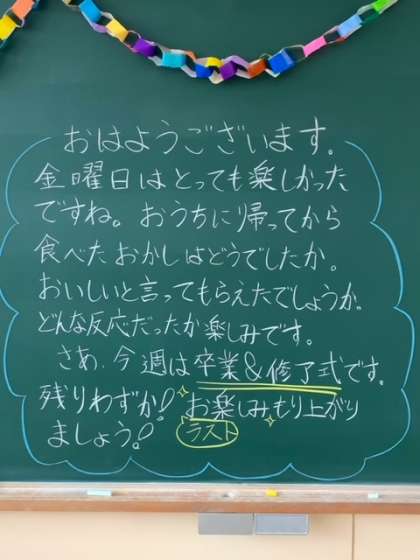 おはようございます。
金曜日はとっても楽しかった
ですね。おうちに帰ってから
食べたおかしはどうでしたか。
おいしいと言ってもらえたでしょうか。
どんな反応だったか楽しみです。
さあ、今週は卒業&修了式です。
残りわずか!お楽しみもり上がり
ましょう!
ラスト